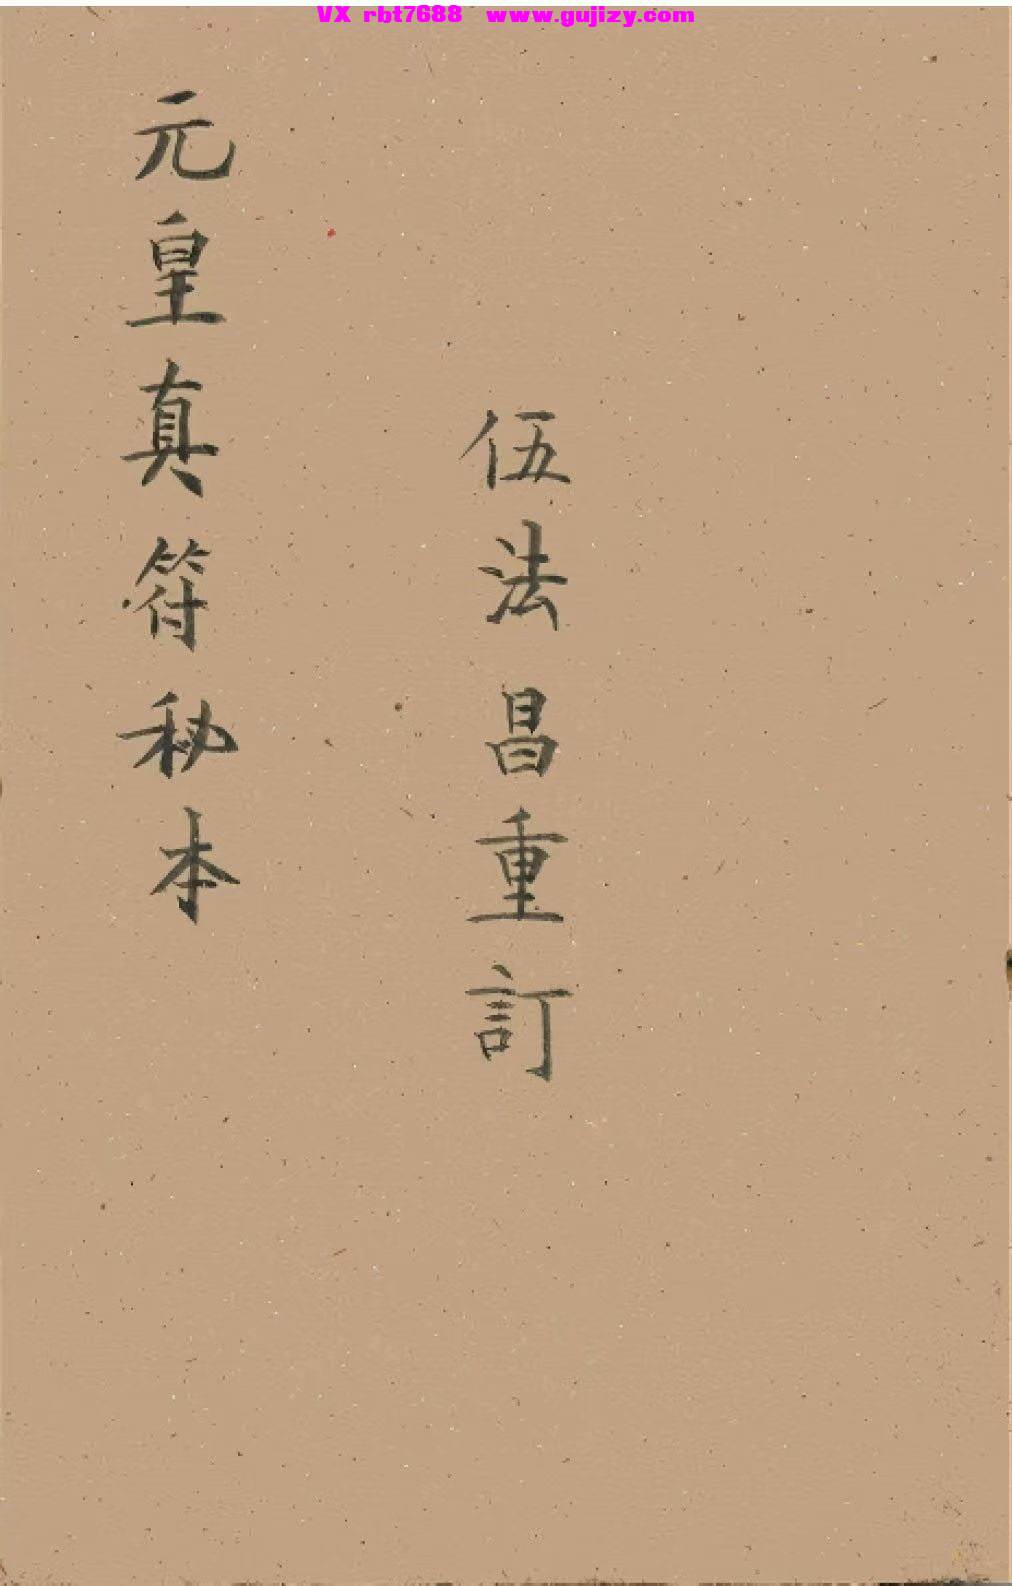 VX rbt7688 www.gujizy.com
伍法昌重訂
元皇真符秘本